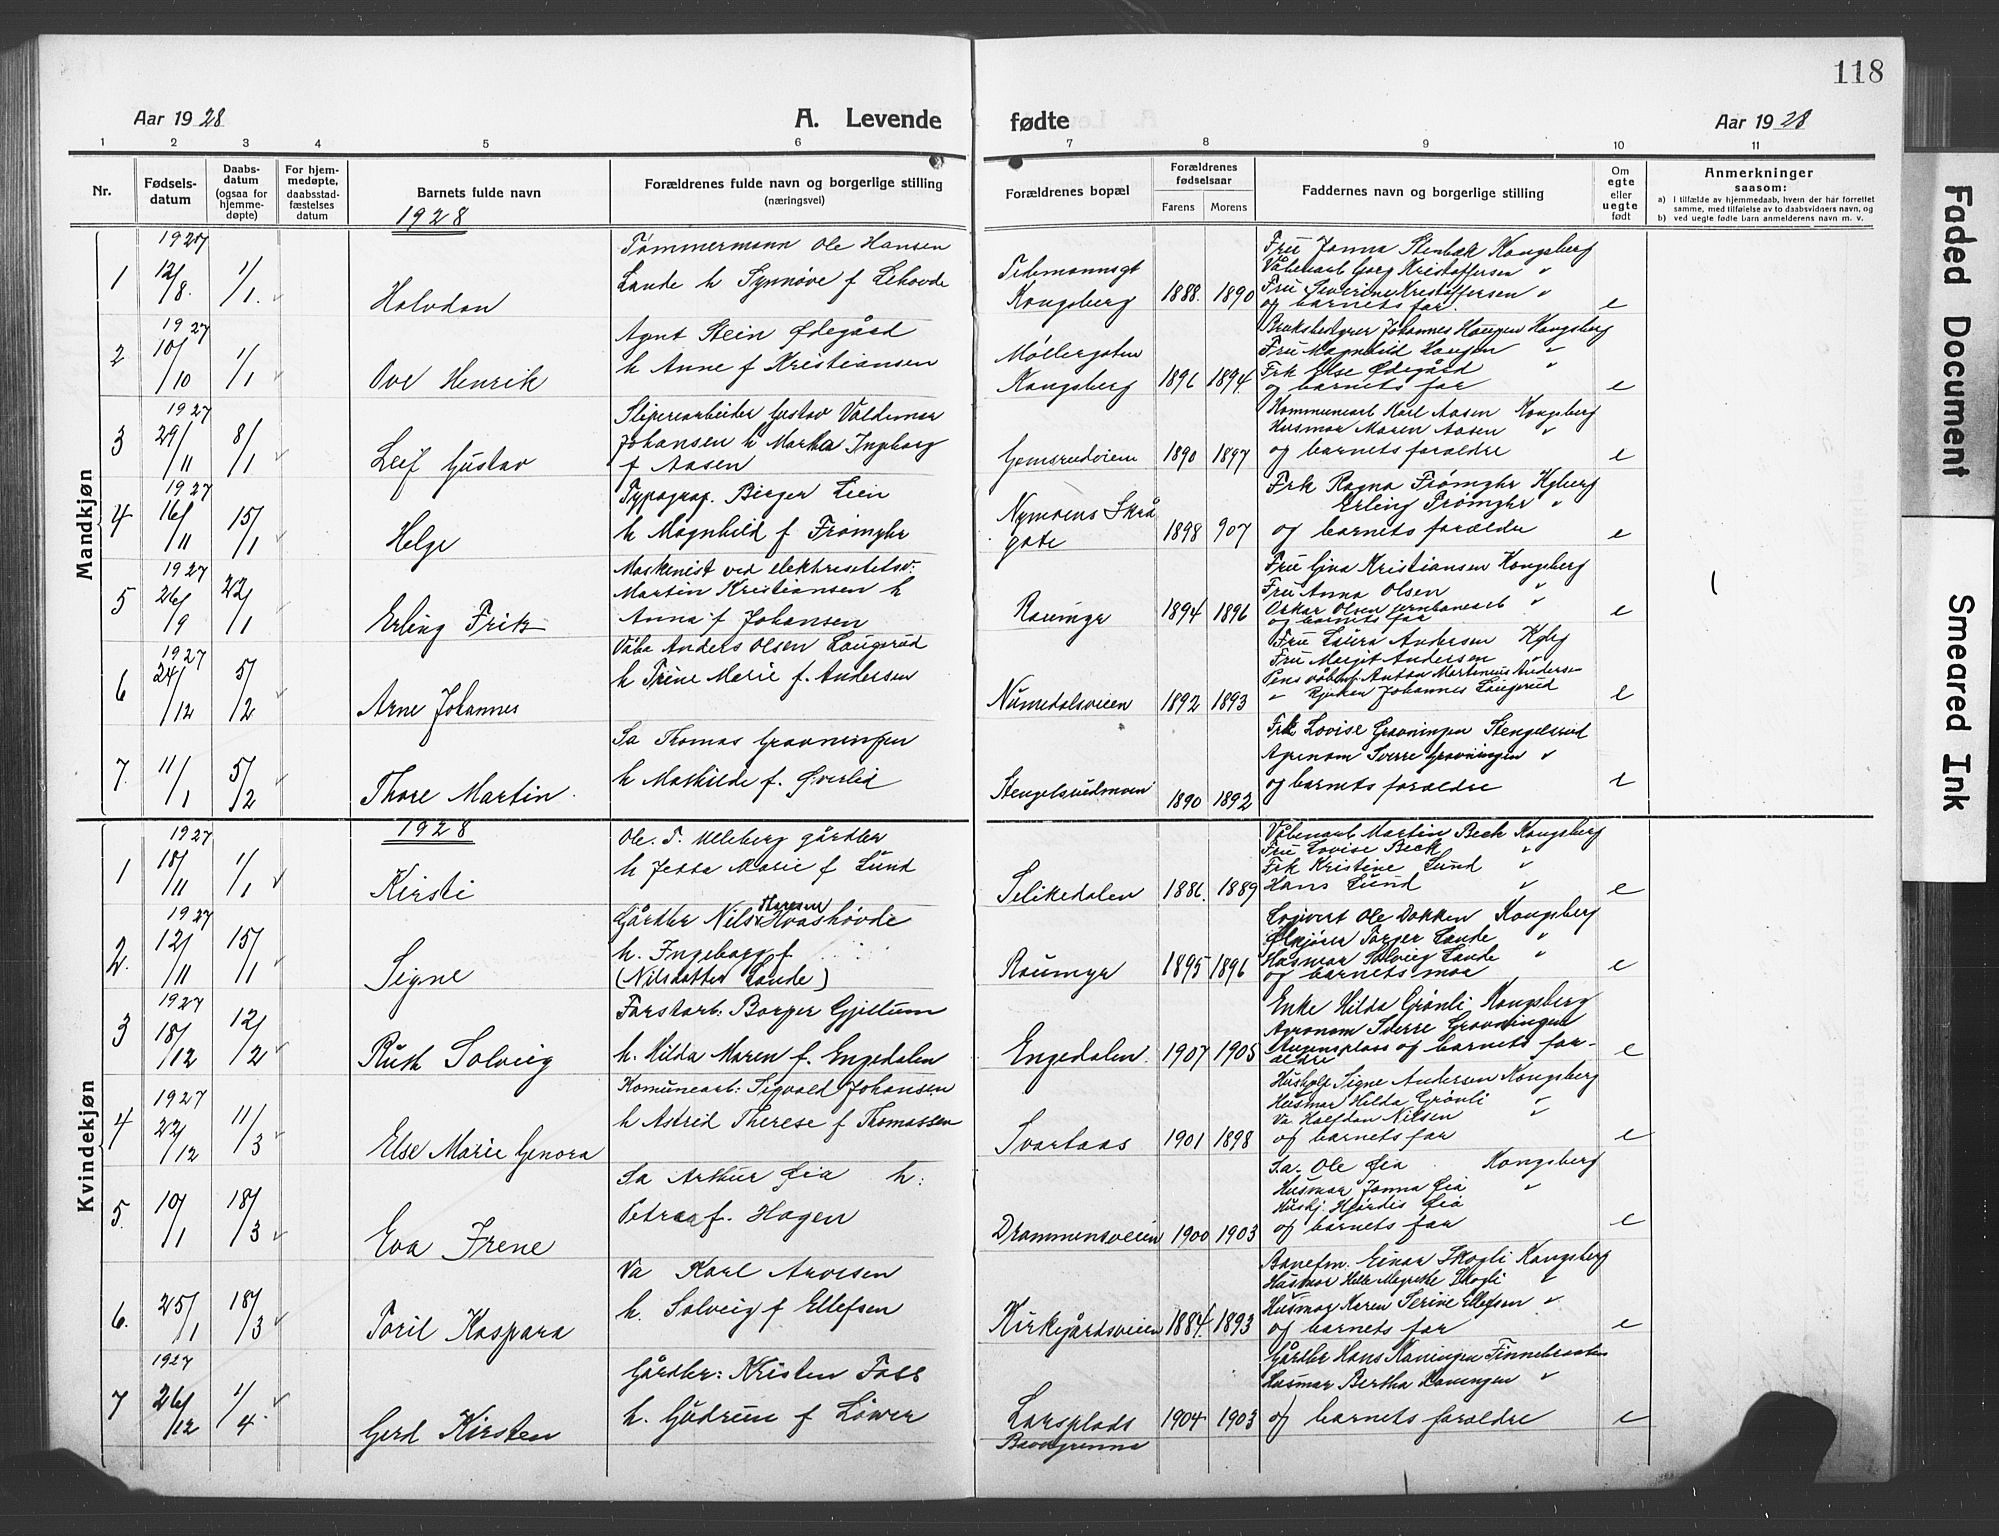 118
Aar 1928
A. Levende
fødte
Aar 1928
1 2 3 4 5 6 7 8 9 10 11
Nr.
Fødsels-
datum
Daabs-
datum
(ogsaa for
hjemme-
døpte)
For hjem-
medøpte,
daabsstad-
fæstelses
datum
Barnets fulde navn
Forældrenes fulde navn og borgerlige stilling
(næringsvei)
Forældrenes bopæl
Forældrenes
fødselsaar
Farens
Morens
Faddernes navn og borgerlige stilling
Om
egte
eller
uegte
født
Anmerkninger
saasom:
a) i tilfælde av hjemmedaab, hvem der har forrettet
samme, med tilføielse av to daabsvidners navn, og
b) ved uegte fødte barn anmelderens navn m. v.
Faded Document
Smeared Ink
Mandkjøn
1928
1
1927
12/8
1/1
Halvdan
Tømmermann Ole Hansen
Lande h Synnøve f Lehovde
Tilemannsgt
Kongsberg
1888
1890
Fru Janna Stenbæk Kongsberg
Våbenarb Georg Kristoffersen "
Fru Severine Kristoffersen "
og barnets far.
e
2
1927
10/10
1/1
Ove Henrik
Agent Stein Ødegård
h Anne f Kristiansen
Møllergaten
Kongsberg
1896
1894
Bruksbestyrer Johannes Haugen Kongsberg
Fru Magnhild Haugen "
Frk Else Ødegård "
og barnets far
e
3
1927
29/11
8/1
Leif Gustav
Sliperearbeider Gustav Valdemar
Johansen h Martha Ingeborg
f Aasen
Gomsrudveien
1890
1897
Kommunearb Karl Aasen Kongsberg
Husmor Maren Aasen "
og barnets foreldre
e
4
1927
16/11
15/1
Helge
Typograf. Birger Lien
h Magnhild f Frømyhr
Nymoens Skrå
gate
1898
907
Frk Ragna Frømyhr Kgberg
Erling Frømyhr "
og barnets forældre
e
5
1927
26/9
22/1
Erling Fritz
Maskinist ved elektrisitetsv.
Martin Kristiansen h
Anna f Johansen
Raumyr
1894
1896
Fru Gina Kristiansen Kongsberg
Fru Anna Olsen "
Oskar Olsen jernbanearb "
og barnets far
e
6
1927
24/12
5/2
Arne Johannes
Våba Anders Olsen Laugerud
h Trine Marie f. Andersen
Numedalsveien
1892
1893
Fru Laura Andersen Kgbg
Fru Margit Andersen "
Pens våben. Anton Martinius Andersen
" Rjukan Johannes Laugerud
e
7.
11/1
5/2
Thore Martin
Sa Thomas Gravningen
h Mathilde f. Øverlid
Stengelsrudmoen
1890
1892
Frk Lovise Gravningen Stengelsrud
Agronom Sverre Gravningen "
og barnets forældre
e
Kvindekjøn
1928
1
1927
18/11
1/1
Kirsti
Ole. T. Ulleberg gårdbr
h Jessa Marie f Lund
Selikedalen
1886
1889
Våbenarb Martin Beck Kongsberg
Fru Lovise Beck "
Frk Kristine Lund "
Hans Lund "
e
2.
1927
12/11
15/1
Signe
Gårdbr Nils Hvashovde
h. Ingeborg f
(Nilsdatter Lande)
Raumyr
1895
1896
Ole Dokken Kongsberg
Ølkjører Torger Lande "
Husmor Solveig Lande "
og barnets mor
e
3
1927
18/12
12/2
Ruth Solveig
Forstarb: Borger Gjellum
h. Hilda Maren f. Engedalen
Engedalen
1907
1905
Enke Hilda Grønli Kongsberg
Agronom Sverre Gravningen
og barnets for-
ældre
e
4
1927
22/12
11/3
Else Marie Genora
Komunearb: Sigvald Johansen
h Astrid Therese f Thomassen
Svartaas
1901
1898
Hushjelp Signe Andersen Kongsberg
Husmor Hilda Grønli "
Va Halfdan Nilsen "
og barnets far
e
5.
10/1
18/3
Eva Irene
Sa Arthur Øia h:
Petra f. Hagen
Drammensveien
1900
1903
Sa. Ole Øia Kongsberg
Husmor Janna Øia "
Hushj. Hjørdis Øia
og barnets far
e
6.
25/1
18/3
Toril Kaspara
Va Karl Arvesen
h. Solveig f Ellefsen
Kirkegårdsveien
1884
1893
Banefm. Einar Skogli Kongsberg
Husmor Helle Magrethe Skogli "
Husmor Karen Serine Ellefsen "
og barnets far
e
7
1927
26/12
1/4
Gerd Kirsten
Gårdbr: Kristen Foss
h. Gudrun f Løwer
Larsplads
Bevergrenna
1904
1903
Gårdbr Hans Kaningen Finnebraaten
Husmor Bertha Kaningen "
og barnets forældre
e